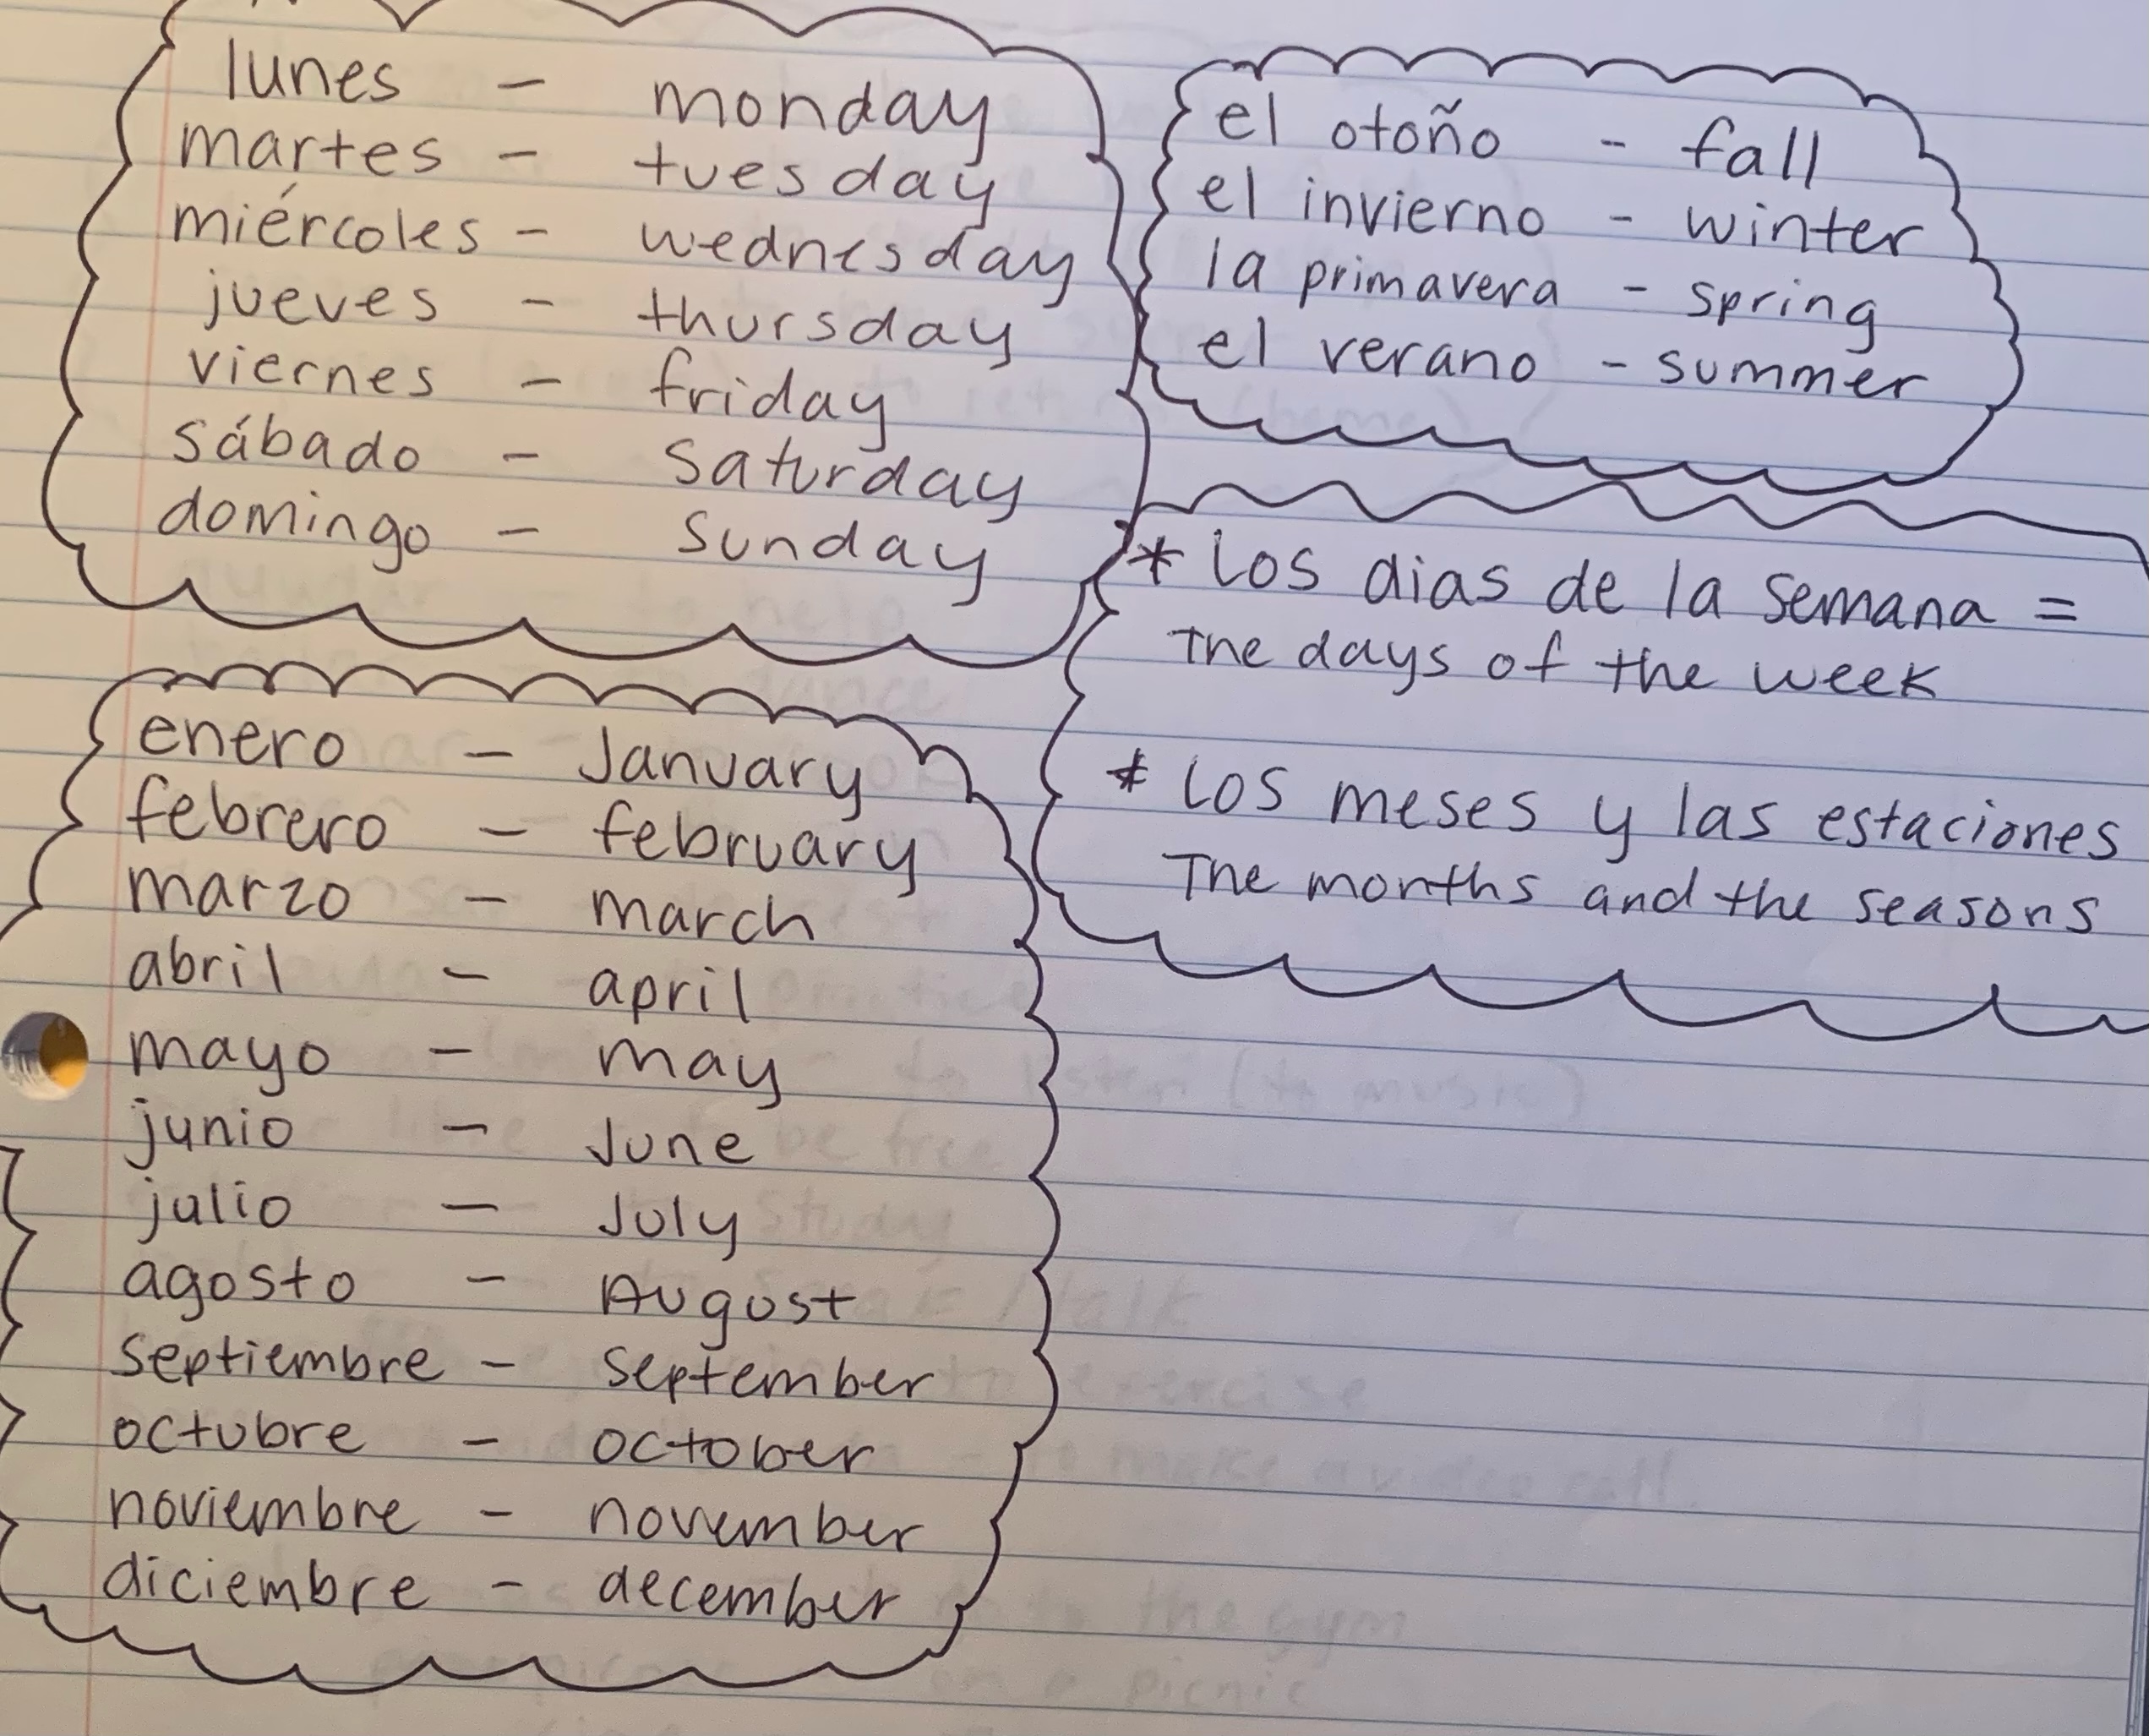 lunes - monday
martes - tuesday
miércoles - wednesday
jueves - thursday
viernes - friday
sábado - saturday
domingo - sunday
el otoño - fall
el invierno - winter
la primavera - spring
el verano - summer
* Los dias de la semana =
The days of the week
* Los meses y las estaciones
The months and the seasons
enero - January
febrero - february
marzo - march
abril - april
mayo - may
junio - June
julio - July
agosto - August
septiembre - september
octubre - october
noviembre - november
diciembre - december